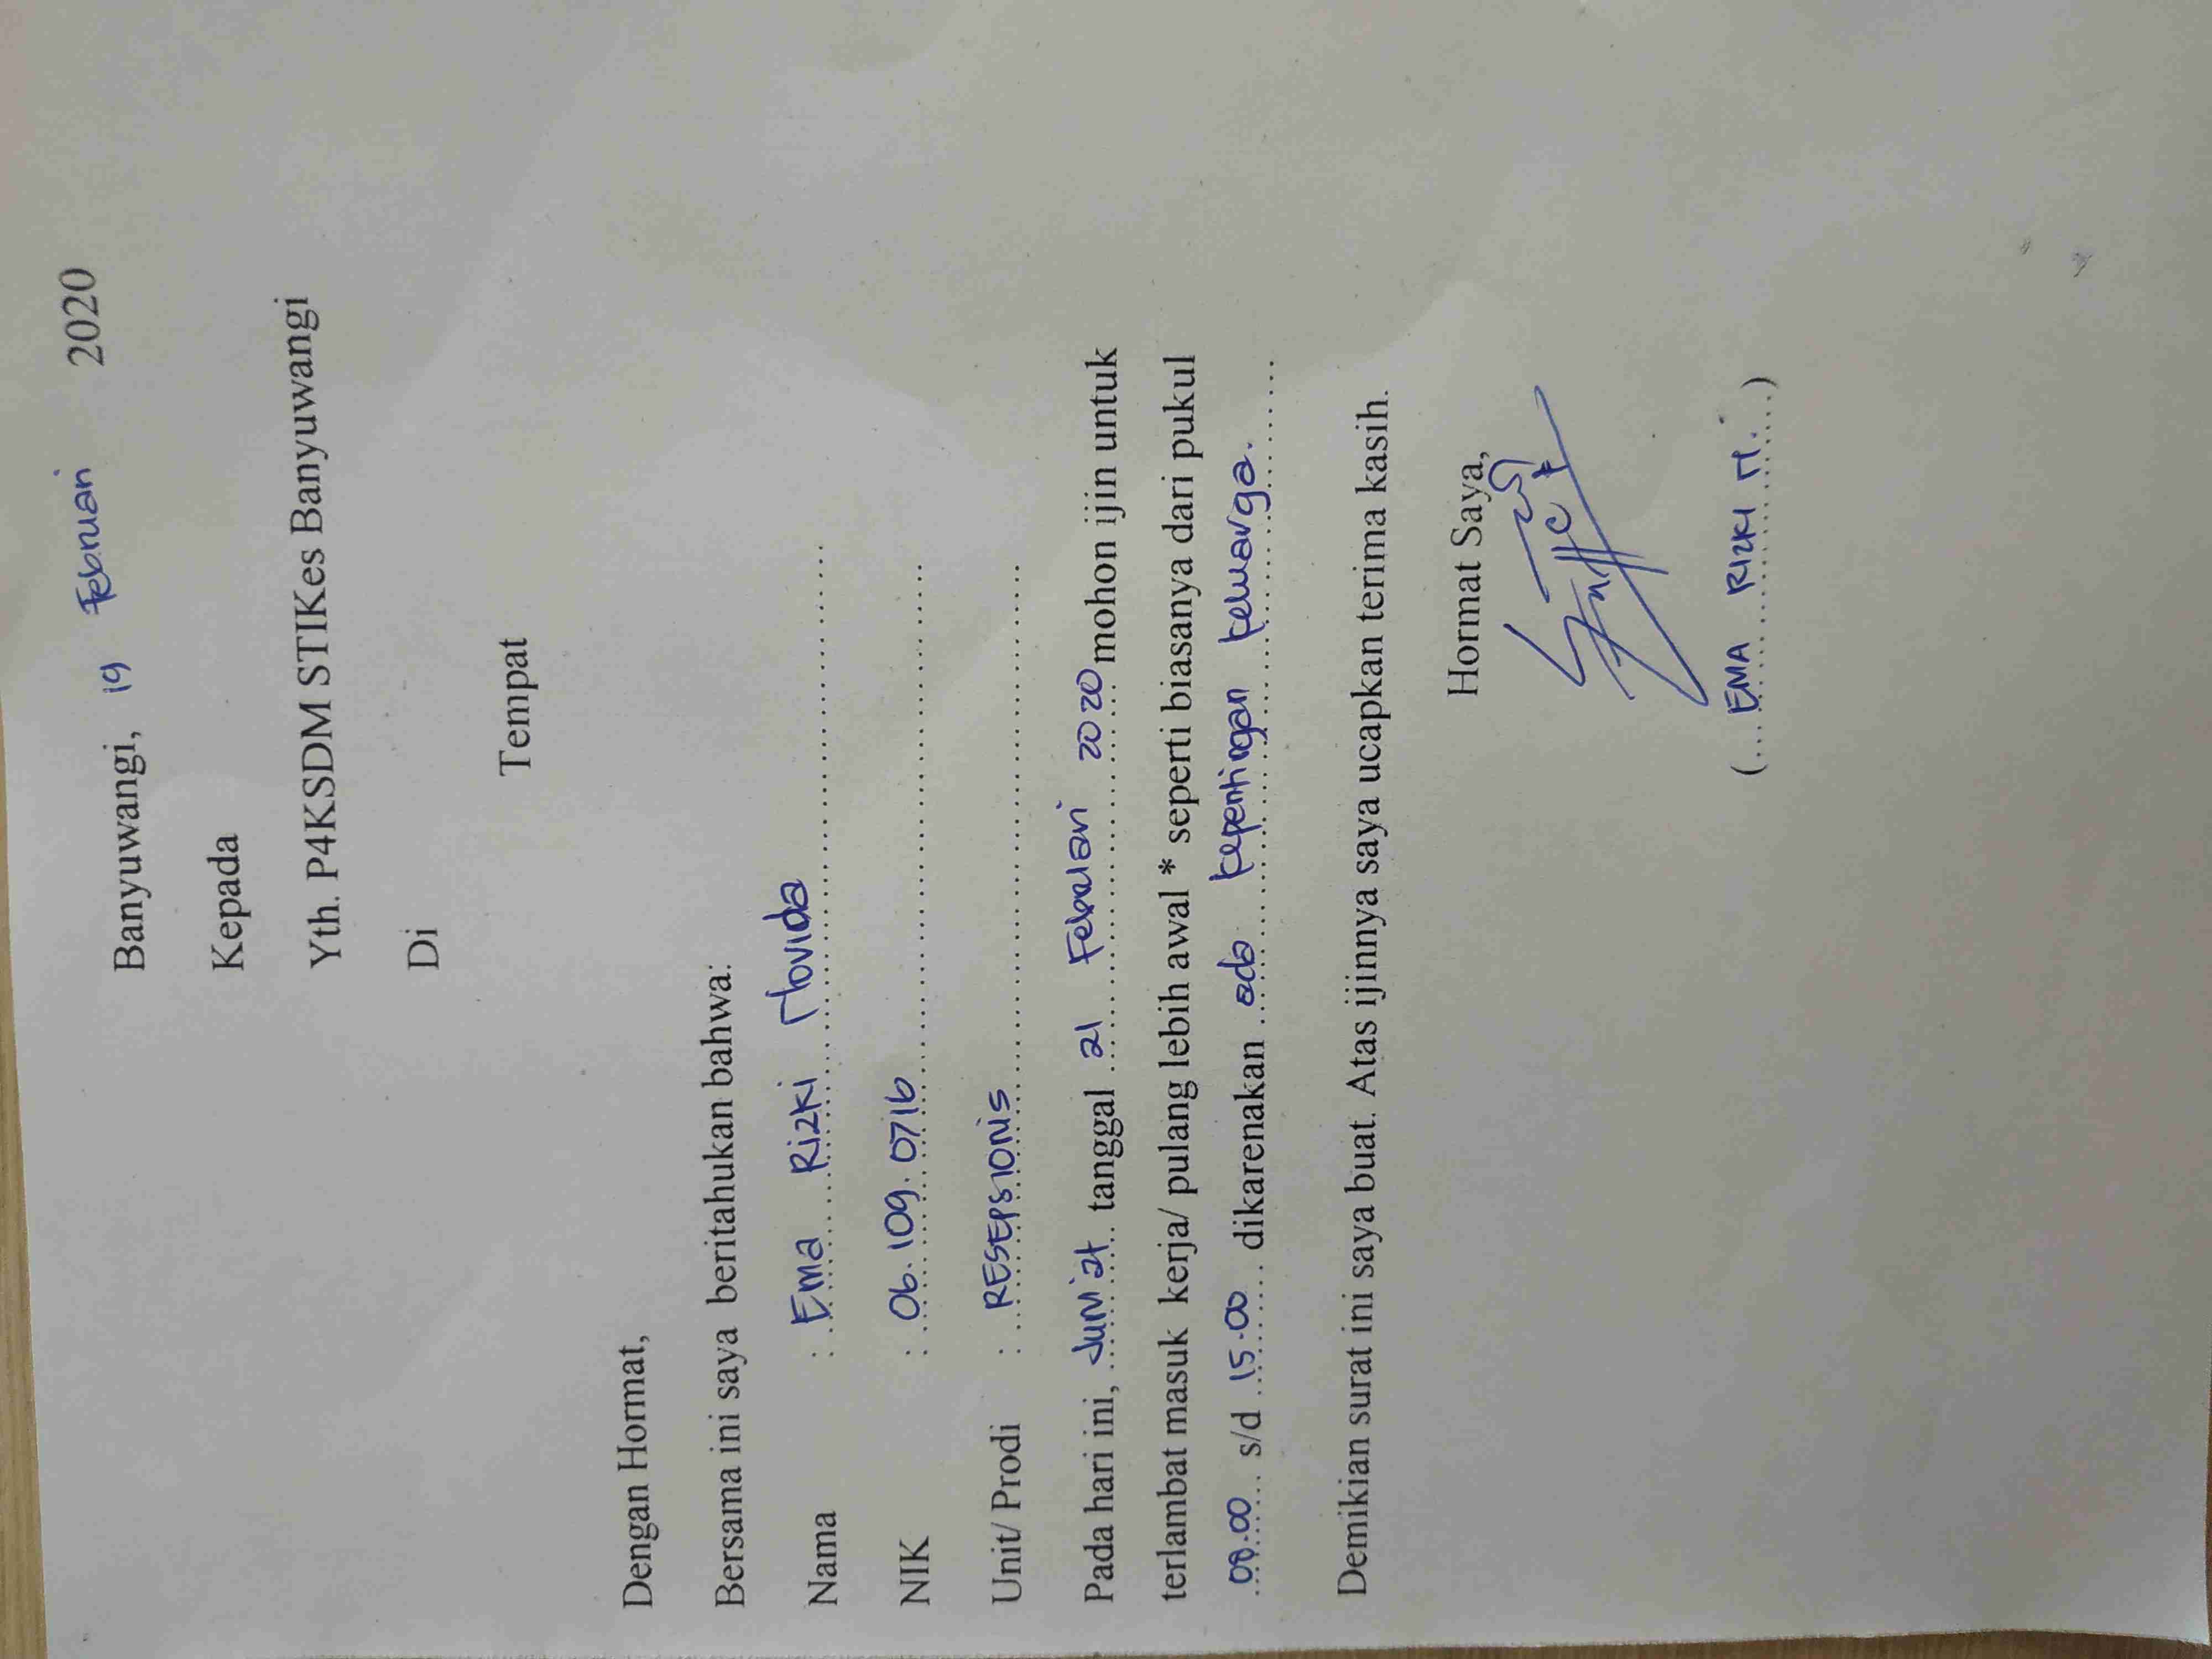 Banyuwangi, 19 Februari 2020
Kepada
Yth. P4KSDM STIKes Banyuwangi
Di
Tempat
Dengan Hormat,
Bersama ini saya beritahukan bahwa:
Nama : Ema Rizki Novida
NIK : 06.109.0716
Unit/ Prodi : RESEPSIONIS
Pada hari ini, Jum'at tanggal 21 Februari 2020 mohon ijin untuk
terlambat masuk kerja/ pulang lebih awal * seperti biasanya dari pukul
08.00 s/d 15.00 dikarenakan ada kepentingan keluarga.
Demikian surat ini saya buat. Atas ijinnya saya ucapkan terima kasih.
Hormat Saya,
(EMA RIZKI N.)